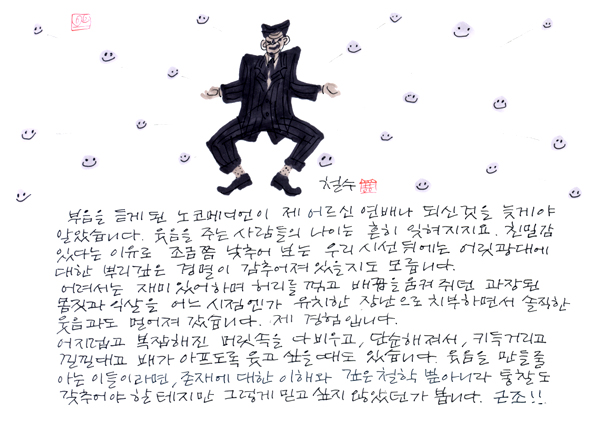 철수
부음을 듣게 된 노코메디언이 제 어르신 연배나 되신 것을 늦게야
알았습니다. 웃음을 주는 사람들의 나이는 흔히 잊혀지지요. 친밀감
있다는 이유로 조금쯤 낮추어 보는 우리 시선 뒤에는 어릿광대에
대한 뿌리깊은 경멸이 감추어져 있을지도 모릅니다.
어려서는 재미있어하며 허리를 꺾고 배꼽을 움켜쥐던 과장된
몸짓과 익살을 어느 시점엔가 유치한 장난으로 치부하면서 솔직한
웃음과도 멀어져 갔습니다. 제 경험입니다.
어지럽고 복잡해진 머릿속을 다 비우고, 단순해져서, 키득거리고
낄낄대고 배가 아프도록 웃고 싶을 때도 있습니다. 웃음을 만들 줄
아는 이들이라면, 존재에 대한 이해와 깊은 철학 뿐아니라 통찰도
갖추어야 할 테지만 그렇게 믿고 싶지 않았던가 봅니다. 근조!!